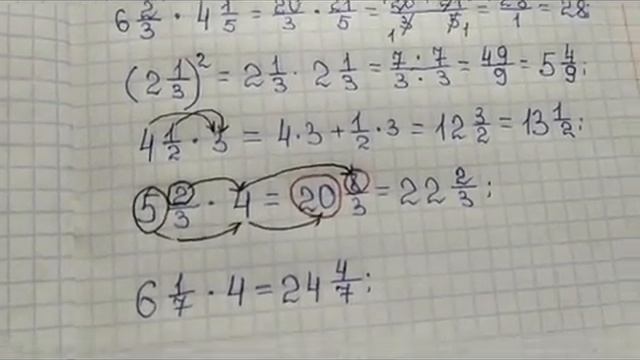 6 2/3 · 4 1/5 = 20/3 · 21/5 = = 28/1 = 28
(2 1/3)² = 2 1/3 · 2 1/3 = 7 · 7/3 · 3 = 49/9 = 5 4/9;
4 1/2 · 3 = 4 · 3 + 1/2 · 3 = 12 3/2 = 13 1/2;
5 2/3 · 4 = 20 8/3 = 22 2/3;
6 1/7 · 4 = 24 4/7;